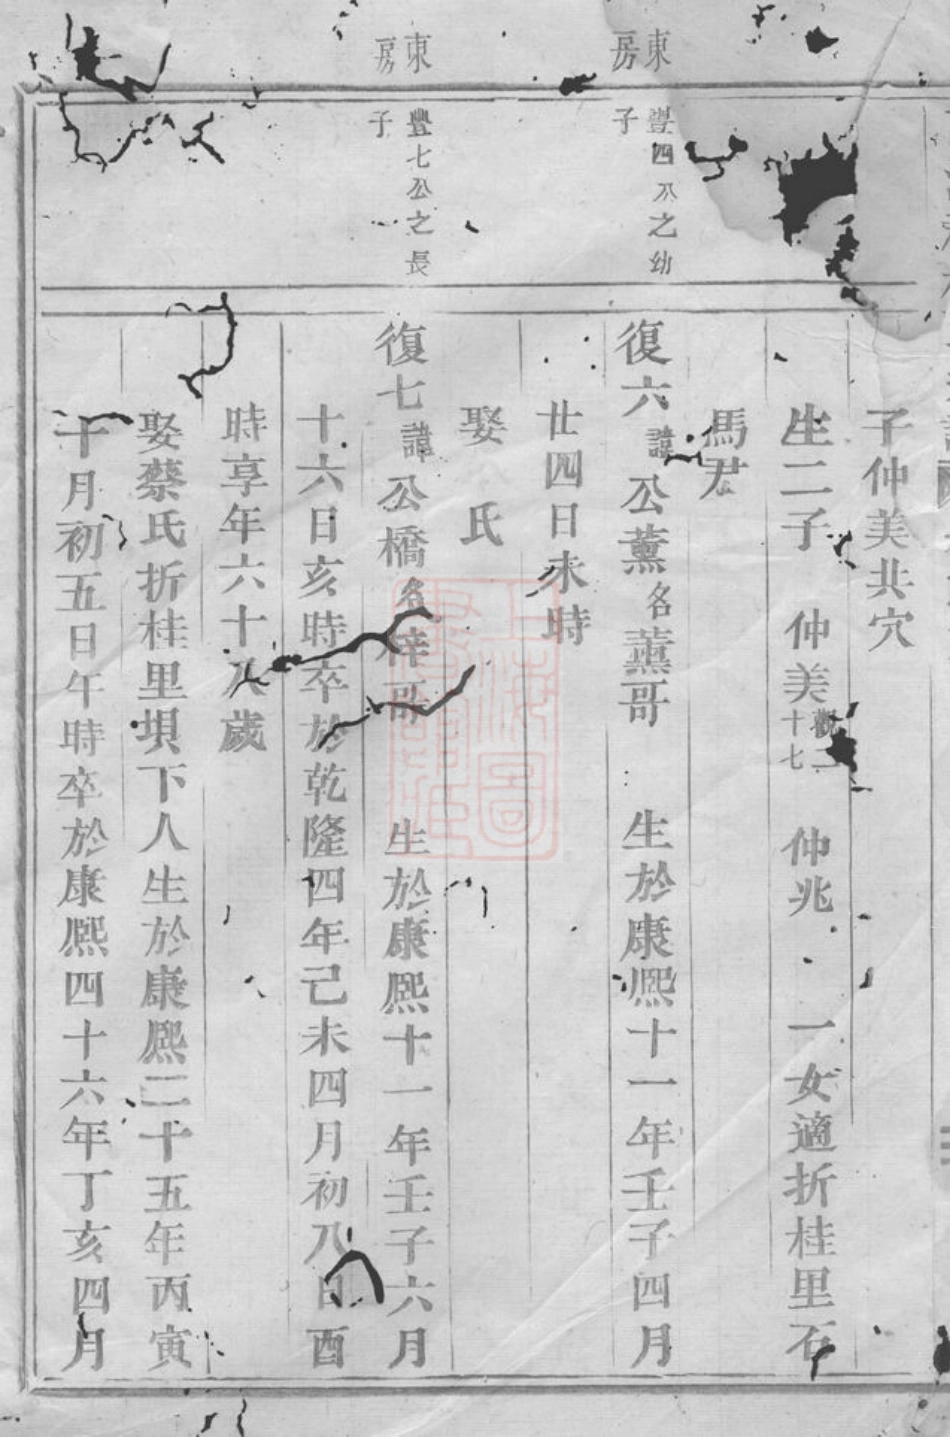 子仲美共穴
生二子　仲美觀二十七　仲兆　一女適折桂里石
馬君
東房
豐四公之幼子
復六諱公薰名薰哥　生於康熙十一年壬子四月
廿四日未時
娶　氏
東房
豐七公之長子
復七諱公橋名梓哥　生於康熙十一年壬子六月
十六日亥時卒於乾隆四年己未四月初八日酉
時享年六十八歲
娶蔡氏折桂里垻下人生於康熙二十五年丙寅
十月初五日午時卒於康熙四十六年丁亥四月